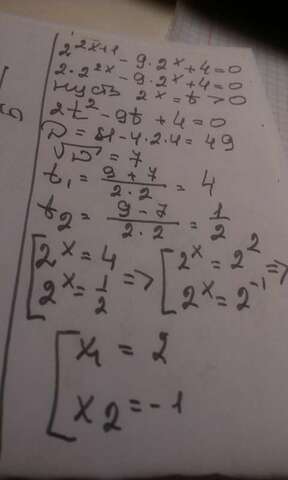 2^{2x+1} - 9·2^x + 4 = 0
2·2^{2x} - 9·2^x + 4 = 0
пусть 2^x = t > 0
2t^2 - 9t + 4 = 0
D = 81 - 4·2·4 = 49
√D = 7
t_1 = (9+7)/(2·2) = 4
t_2 = (9-7)/(2·2) = 1/2
[2^x = 4 => [2^x = 2^2 =>
[2^x = 1/2 [2^x = 2^{-1}
[x_1 = 2
[x_2 = -1